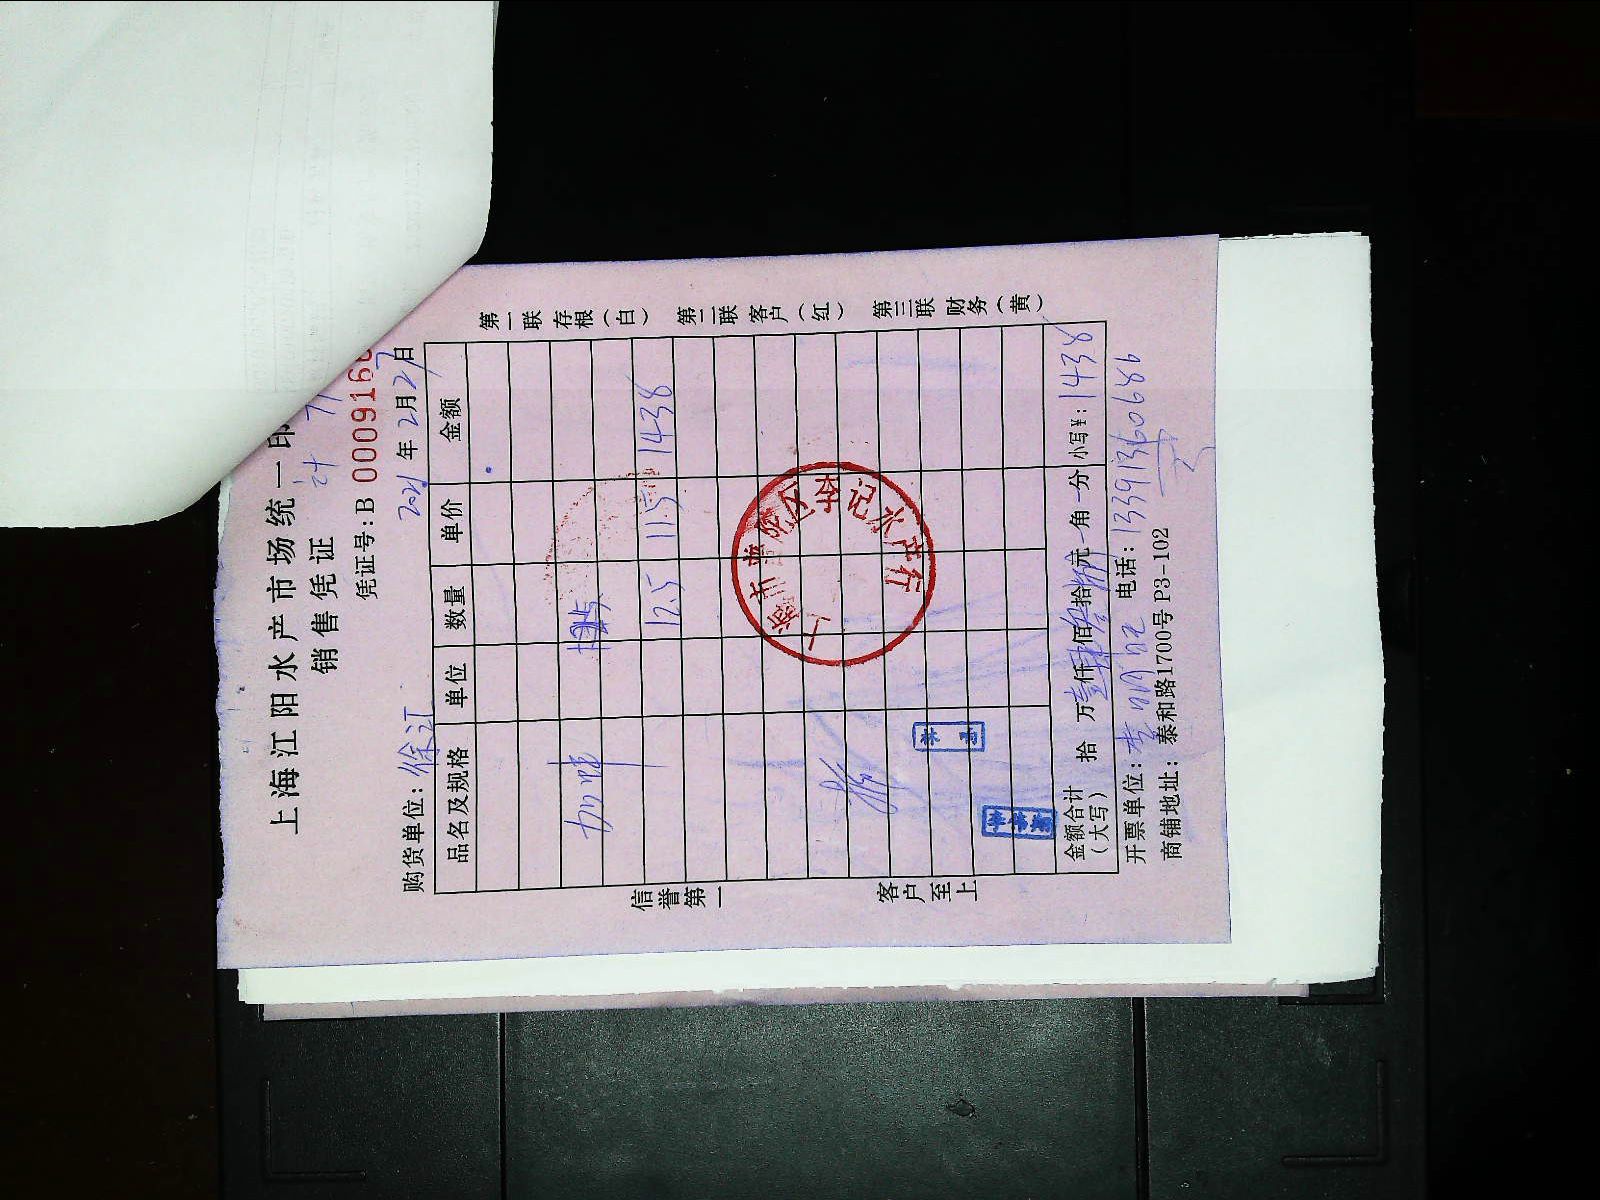 上海江阳水产市场统一印
销售凭证
凭证号:B 000916
购货单位: 徐汇 2021年2月27日
品名及规格 单位 数量 单价 金额
加
12.5 115 1438
上海市普陀区李记水产行
金额合计(大写) 拾 万壹仟肆佰叁拾捌元 角 分 小写¥: 1438
开票单位: 李明 电话: 13391360686
商铺地址: 泰和路1700号 P3-102
第一联 存根(白) 第二联 客户(红) 第三联 财务(黄)
信誉第一 客户至上